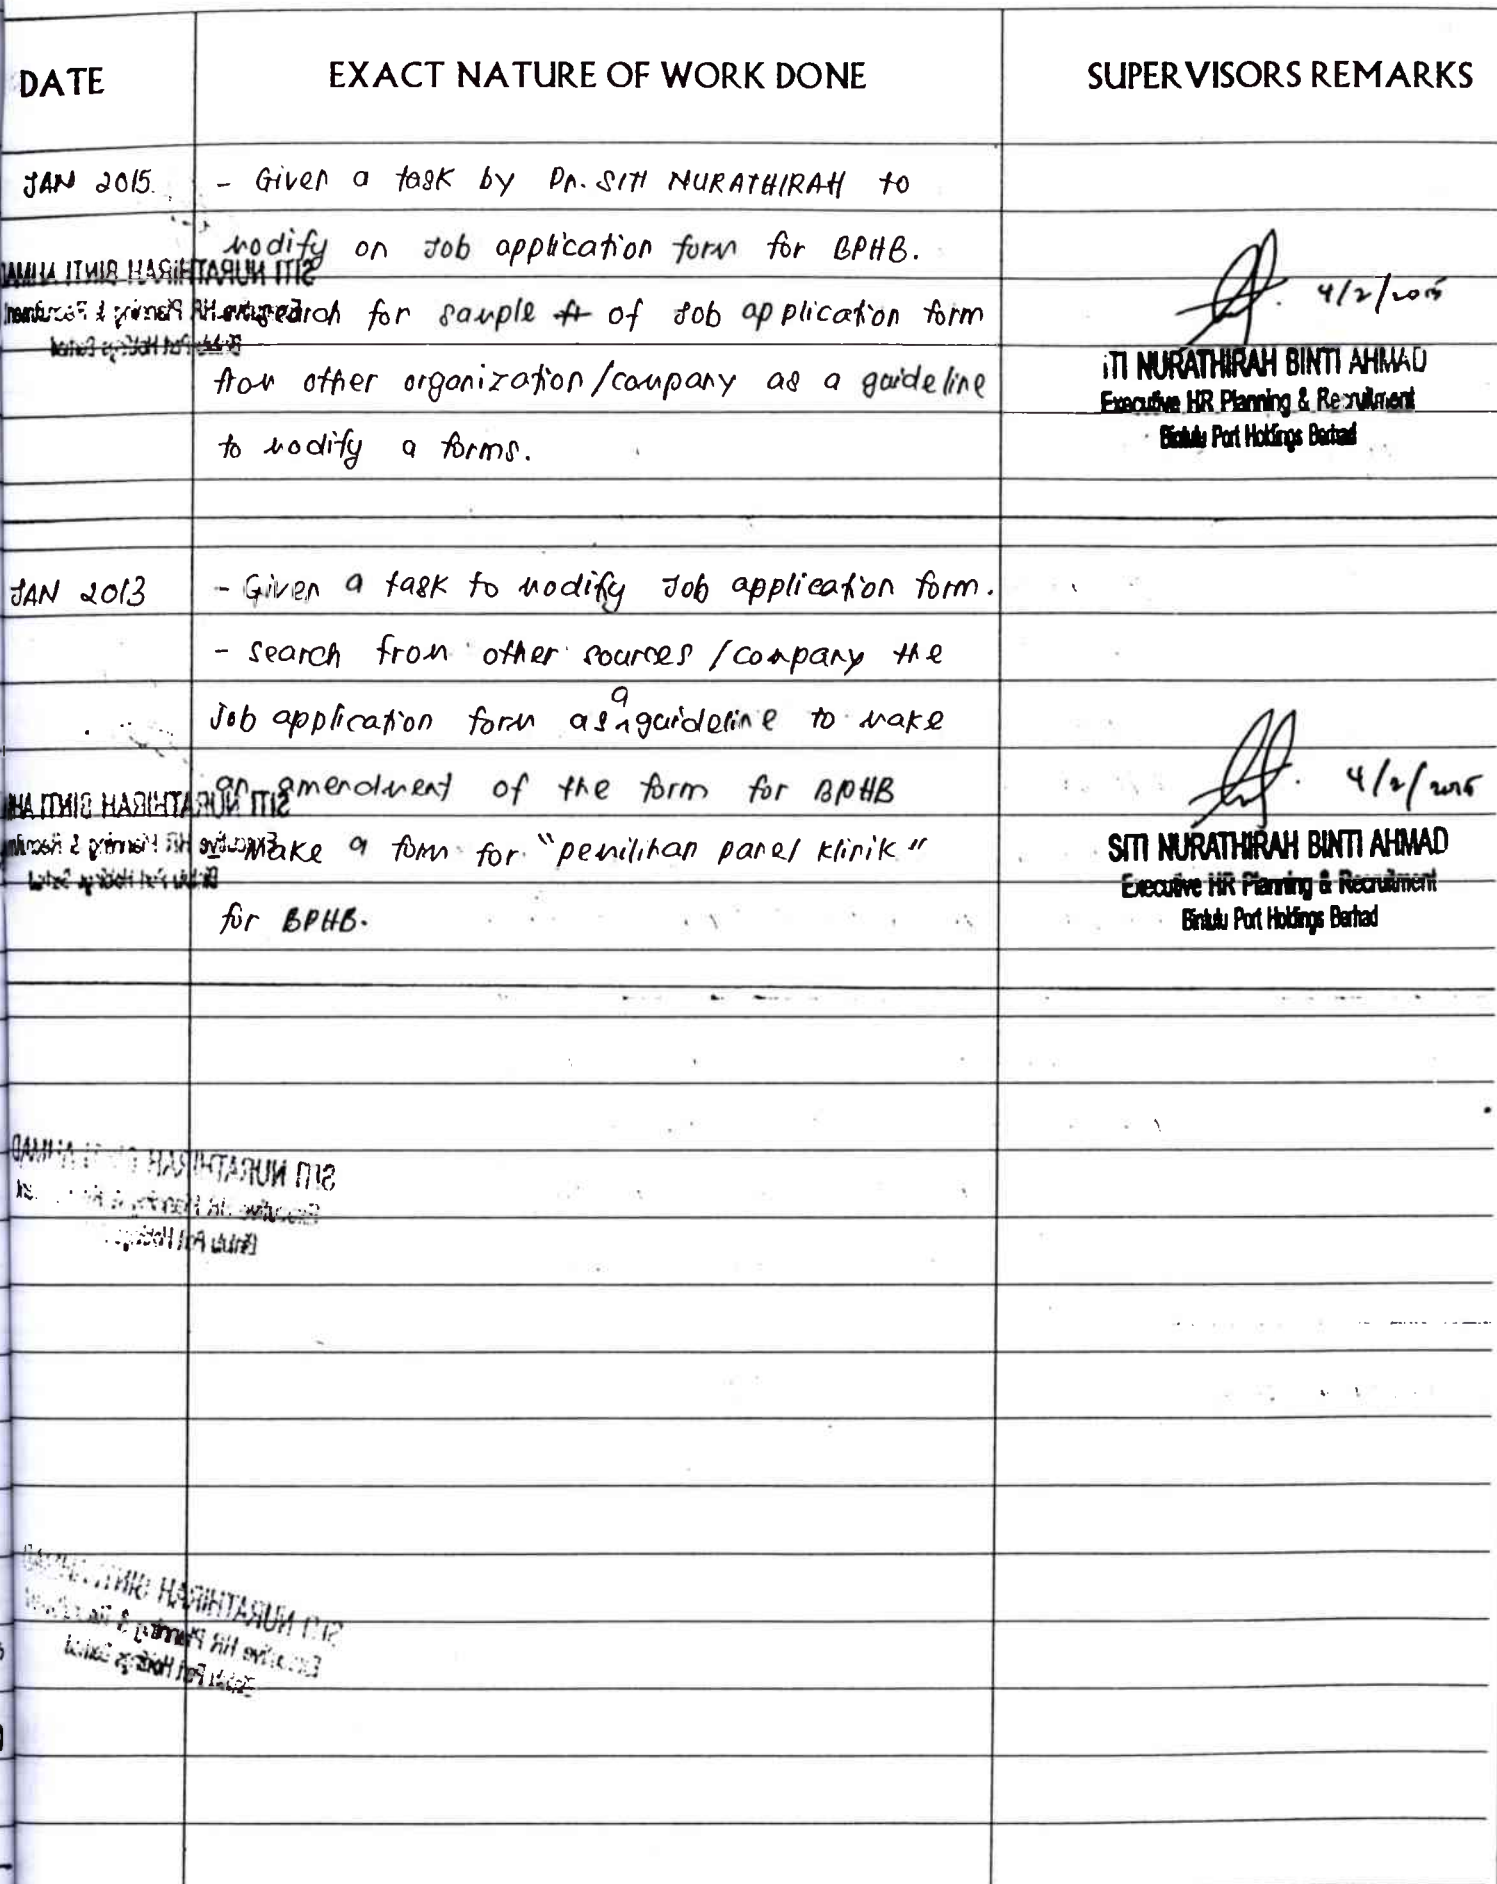 DATE EXACT NATURE OF WORK DONE SUPERVISORS REMARKS
JAN 2015. - Given a task by Pn. SITI NURATHIRAH to
modify on Job application form for BPHB.
search for sample of Job application form
from other organization/company as a guideline
to modify a forms.
4/2/2015
ITI NURATHIRAH BINTI AHMAD
Executive HR Planning & Recruitment
Bintulu Port Holdings Berhad
JAN 2013 - Given a task to modify Job application form.
- search from other sources /company the
Job application form as a guideline to make
an amendment of the form for BPHB
- Make a form for "pemilihan panel klinik"
for BPHB.
4/2/2015
SITI NURATHIRAH BINTI AHMAD
Executive HR Planning & Recruitment
Bintulu Port Holdings Berhad